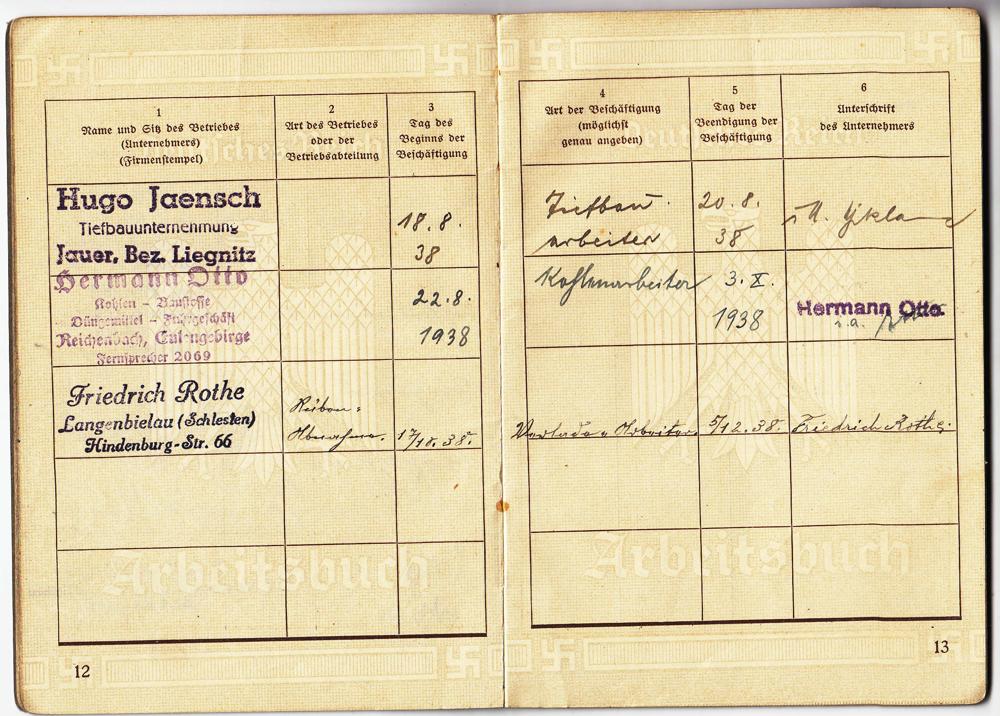 1
Name und Sitz des Betriebes
(Unternehmers)
(Firmenstempel)
2
Art des Betriebes
oder der
Betriebsabteilung
3
Tag des
Beginns der
Beschäftigung
Hugo Jaensch
Tiefbauunternenmung
Jauer, Bez. Liegnitz
18.8.
38
Hermann Otto
Kohlen – Baustoffe
Düngemittel – Fuhrgeschäft
Reichenbach, Eulengebirge
Fernsprecher 2069
22.8.
1938
Friedrich Rothe
Langenbielau (Schlesien)
Hindenburg-Str. 66
17/10. 38.
Arbeitsbuch
12
4
Art der Beschäftigung
(möglichst
genau angeben)
5
Tag der
Beendigung der
Beschäftigung
6
Unterschrift
des Unternehmers
Tiefbau
arbeiter
20.8.
38
Kohlenarbeiter
3. X.
1938
Hermann Otto
Arbeiter
5/12. 38.
Friedrich Rothe.
Arbeitsbuch
13